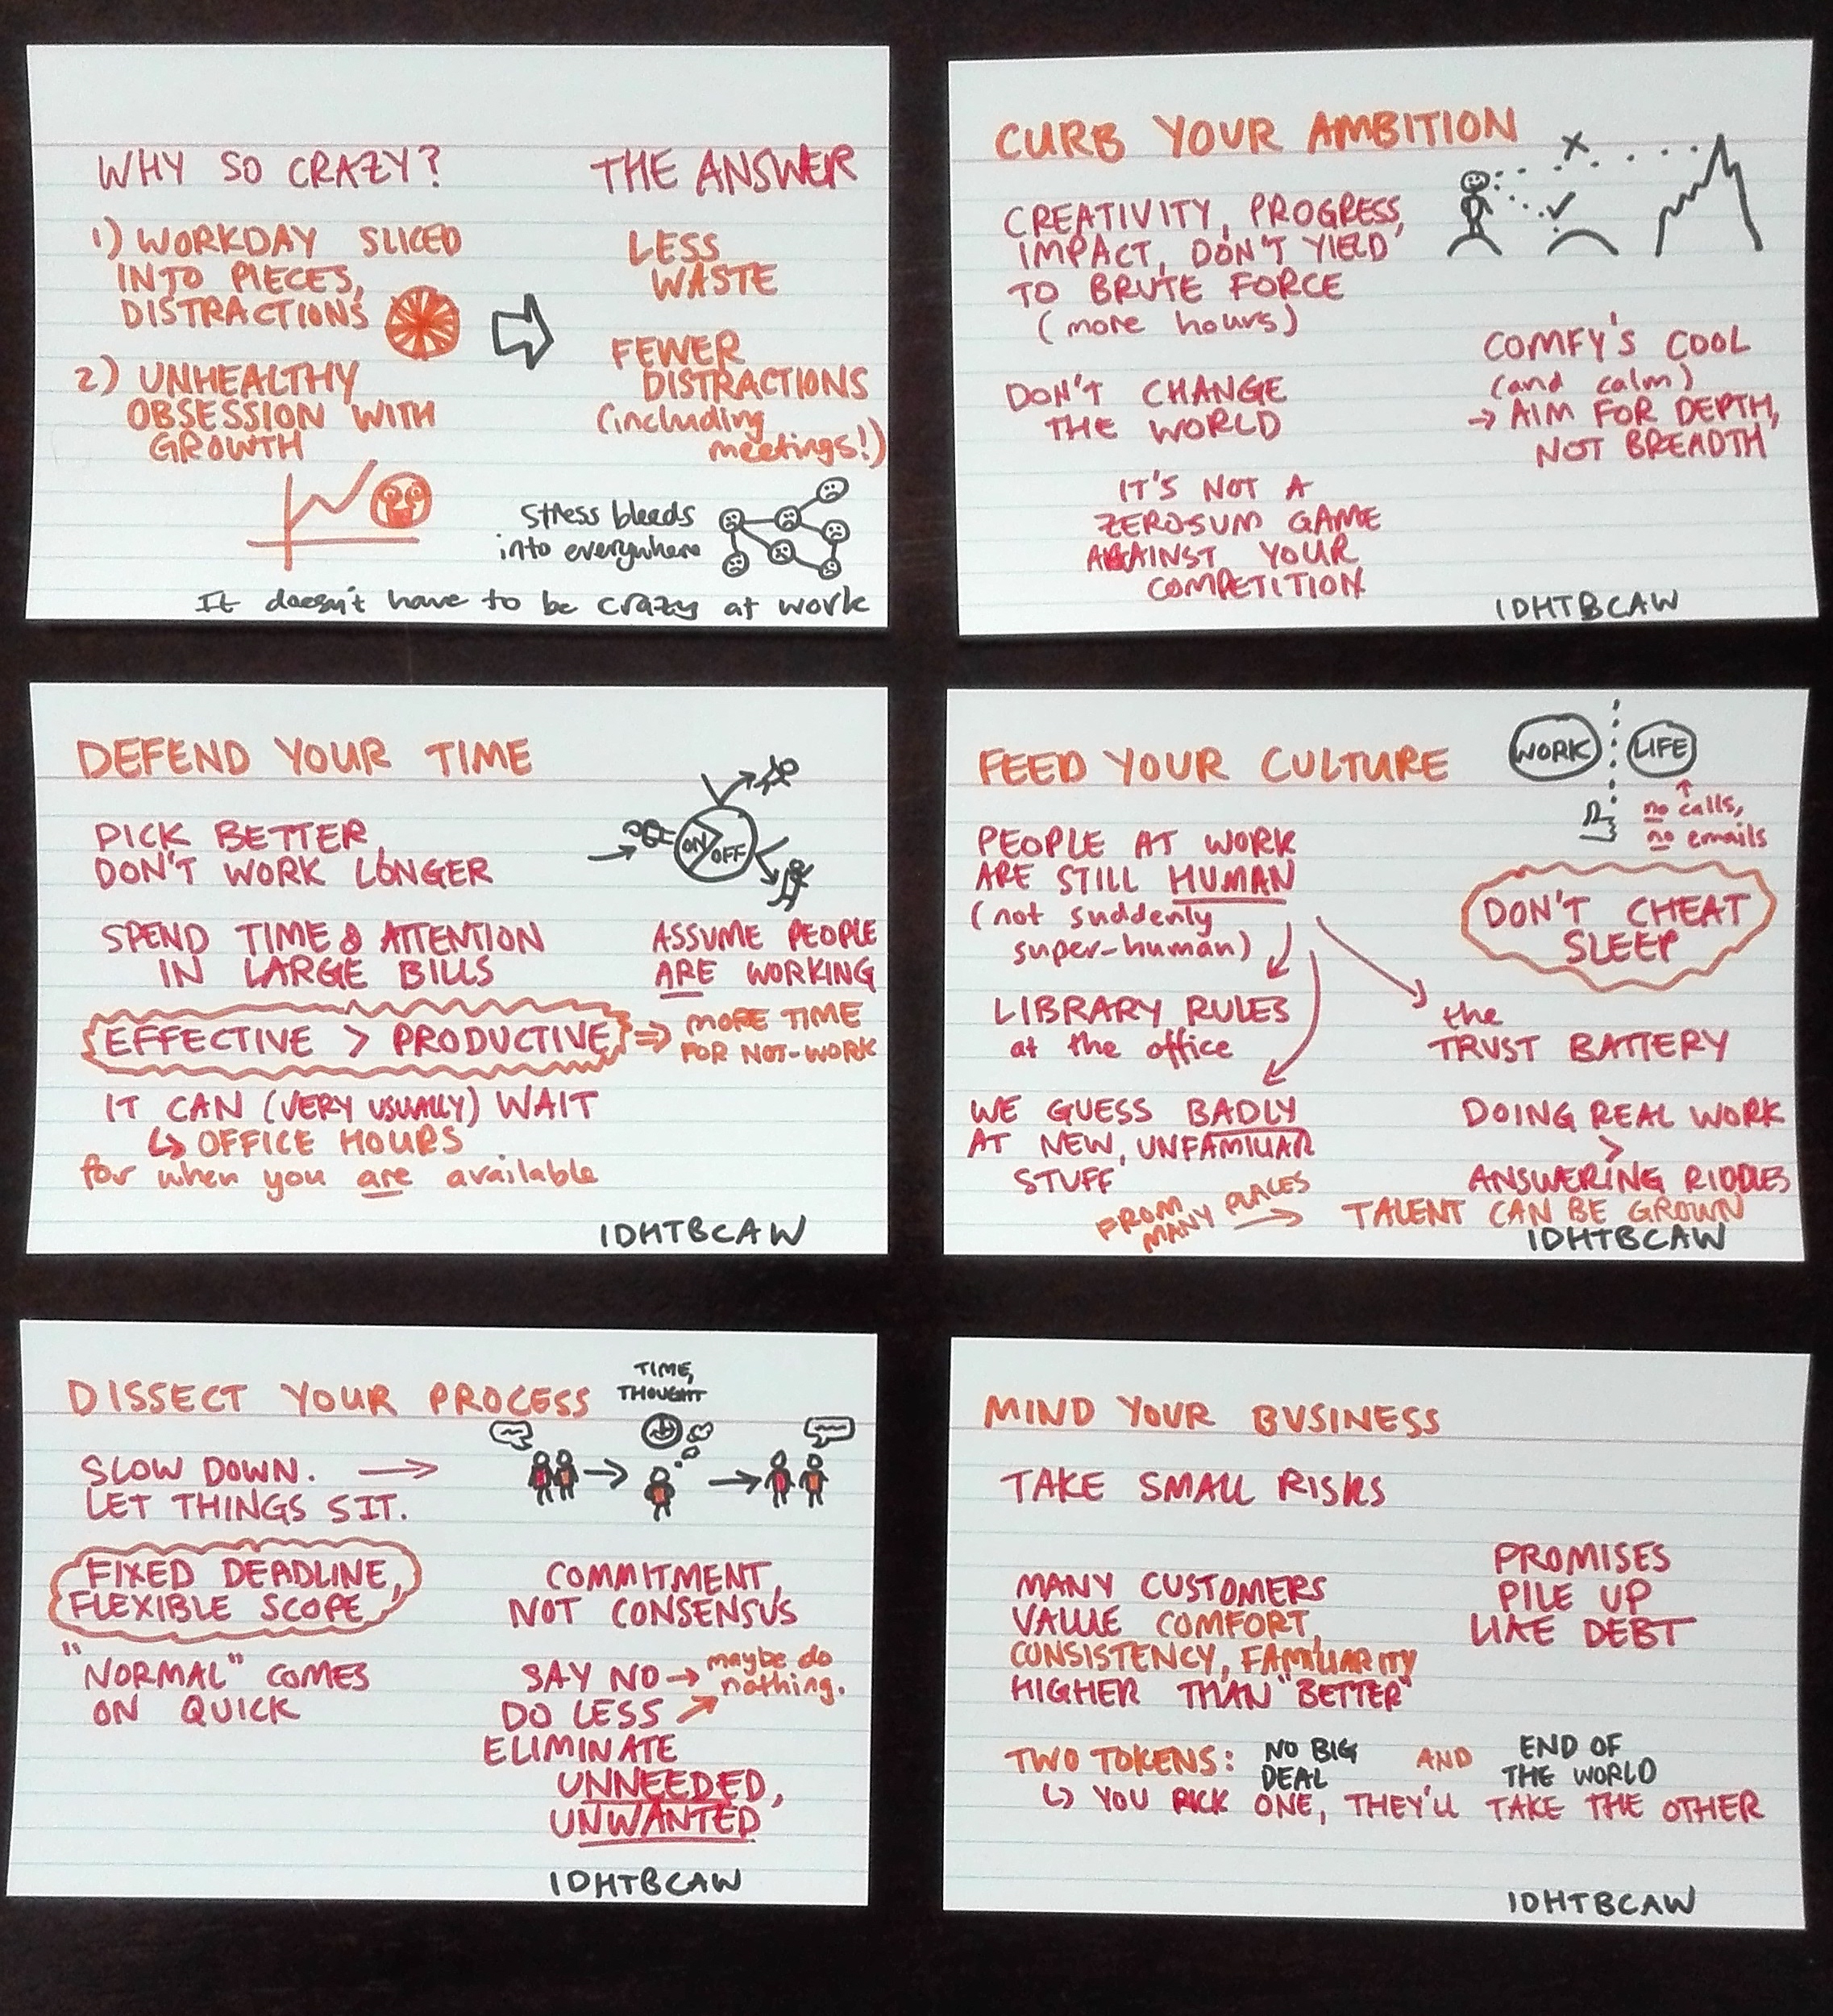 WHY SO CRAZY?
1) WORKDAY SLICED
INTO PIECES,
DISTRACTIONS
2) UNHEALTHY
OBSESSION WITH
GROWTH
THE ANSWER
LESS
WASTE
FEWER
DISTRACTIONS
(including
meetings!)
Stress bleeds
into everywhere
It doesn't have to be crazy at work
CURB YOUR AMBITION
CREATIVITY, PROGRESS,
IMPACT, DON'T YIELD
TO BRUTE FORCE
(more hours)
DON'T CHANGE
THE WORLD
IT'S NOT A
ZEROSUM GAME
AGAINST YOUR
COMPETITION
COMFY'S COOL
(and calm)
→ AIM FOR DEPTH,
NOT BREADTH
IDHTBCAW
DEFEND YOUR TIME
PICK BETTER,
DON'T WORK LONGER
ON OFF
SPEND TIME & ATTENTION
IN LARGE BILLS
ASSUME PEOPLE
ARE WORKING
EFFECTIVE > PRODUCTIVE
⇒ MORE TIME
FOR NOT-WORK
IT CAN (VERY USUALLY) WAIT
↳ OFFICE HOURS
for when you are available
IDHTBCAW
FEED YOUR CULTURE
WORK LIFE
no calls,
no emails
PEOPLE AT WORK
ARE STILL HUMAN
(not suddenly
super-human)
DON'T CHEAT
SLEEP
LIBRARY RULES
at the office
the
TRUST BATTERY
WE GUESS BADLY
AT NEW, UNFAMILIAR
STUFF
DOING REAL WORK
>
ANSWERING RIDDLES
FROM
MANY PLACES
→ TALENT CAN BE GROWN
IDHTBCAW
DISSECT YOUR PROCESS
TIME,
THOUGHT
SLOW DOWN. →
LET THINGS SIT.
FIXED DEADLINE,
FLEXIBLE SCOPE
"NORMAL" COMES
ON QUICK
COMMITMENT,
NOT CONSENSUS
SAY NO → maybe do
nothing.
DO LESS
ELIMINATE
UNNEEDED,
UNWANTED
IDHTBCAW
MIND YOUR BUSINESS
TAKE SMALL RISKS
MANY CUSTOMERS
VALUE COMFORT,
CONSISTENCY, FAMILIARITY
HIGHER THAN "BETTER"
PROMISES
PILE UP
LIKE DEBT
TWO TOKENS: NO BIG DEAL AND END OF THE WORLD
↳ YOU PICK ONE, THEY'LL TAKE THE OTHER
IDHTBCAW